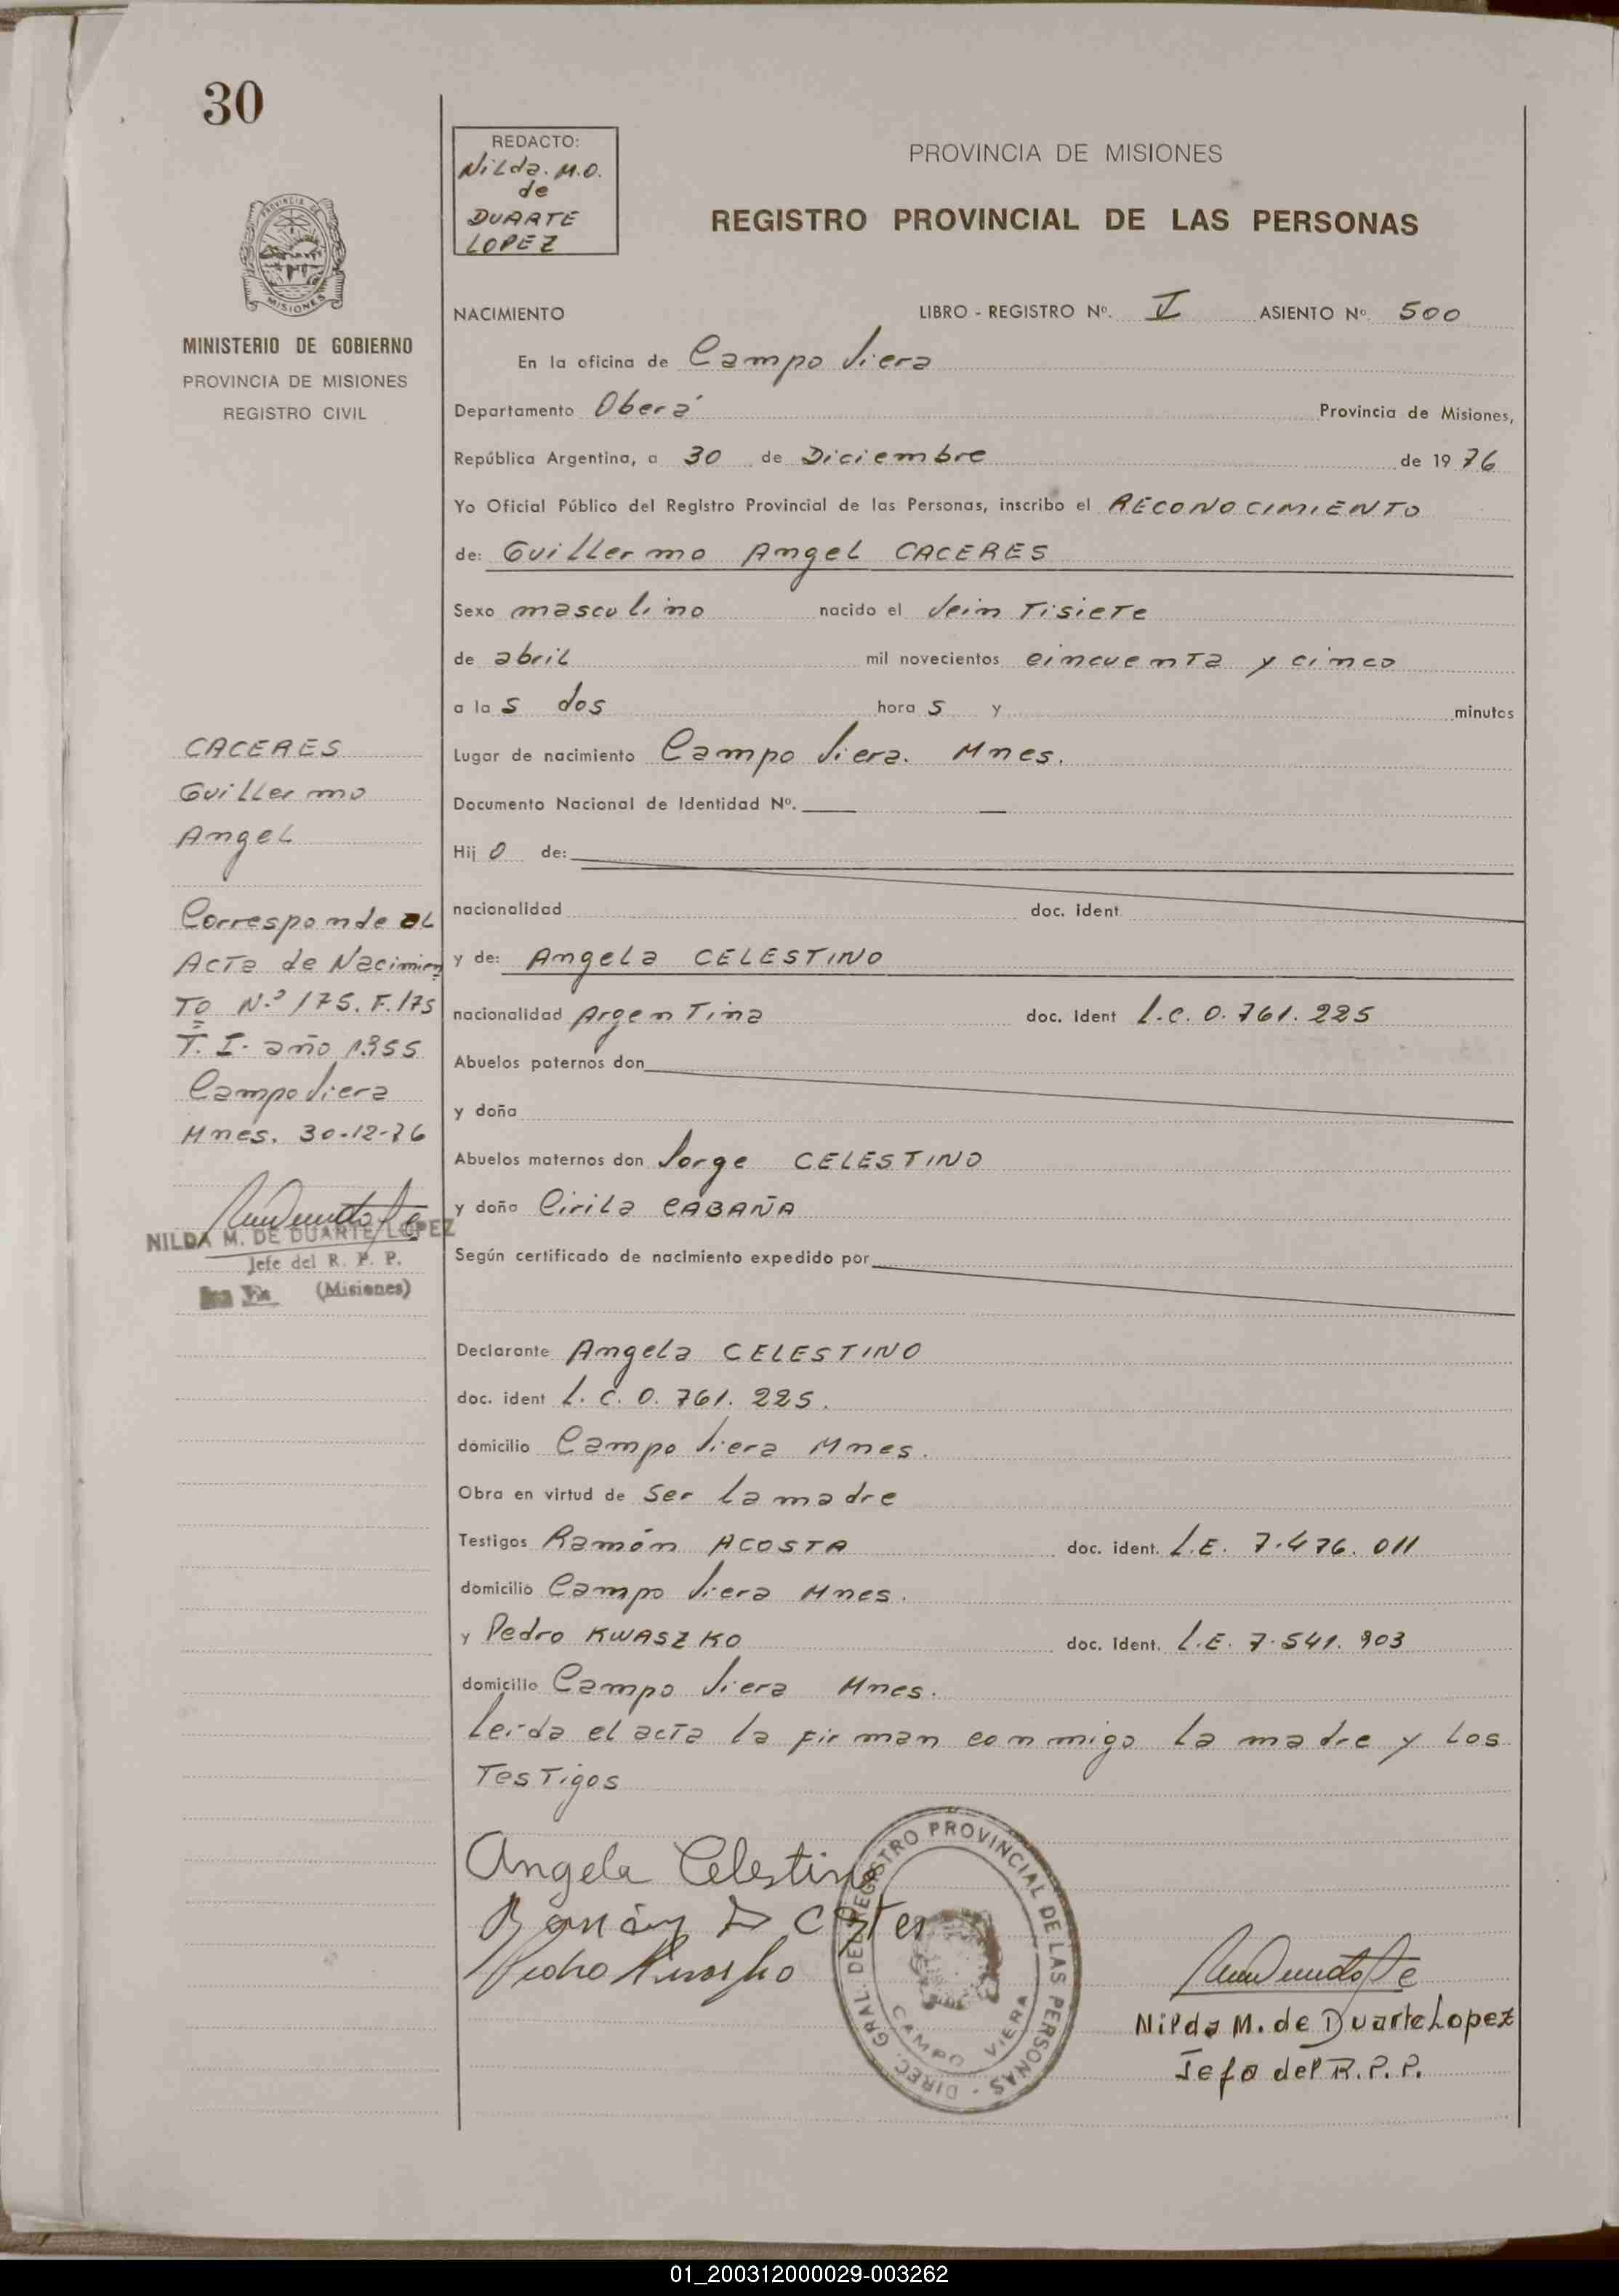 30
REDACTO:
Nilda. M.O.
de
DUARTE
LOPEZ
PROVINCIA DE MISIONES
REGISTRO PROVINCIAL DE LAS PERSONAS
MISIONES
MINISTERIO DE GOBIERNO
PROVINCIA DE MISIONES
REGISTRO CIVIL
NACIMIENTO LIBRO - REGISTRO Nº. V ASIENTO Nº. 500
En la oficina de Campo Viera
Departamento Oberá Provincia de Misiones,
República Argentina, a 30 de Diciembre de 1976
Yo Oficial Público del Registro Provincial de las Personas, inscribo el RECONOCIMIENTO
de: Guillermo Angel CACERES
Sexo masculino nacido el Veintisiete
de abril mil novecientos cincuenta y cinco
a las dos horas y minutos
Lugar de nacimiento Campo Viera. Mnes.
Documento Nacional de Identidad Nº. —— —
Hijo de:
nacionalidad doc. ident.
y de: Angela CELESTINO
nacionalidad Argentina doc. ident L.C. 0.761.225
Abuelos paternos don
y doña
Abuelos maternos don Jorge CELESTINO
y doña Cirila CABAÑA
Según certificado de nacimiento expedido por
Declarante Angela CELESTINO
doc. ident L.C. 0.761.225.
domicilio Campo Viera Mnes.
Obra en virtud de Ser la madre
Testigos Ramón ACOSTA doc. ident. L.E. 7.476.011
domicilio Campo Viera Mnes.
y Pedro KWASZKO doc. Ident. L.E. 7.541.903
domicilio Campo Viera Mnes.
Leída el acta la firman conmigo la madre y los
Testigos
CACERES
Guillermo
Angel
Corresponde al
Acta de Nacimien
to Nº 175. F.175
T. I. año 1955
Campo Viera
Mnes. 30-12-76
NILDA M. DE DUARTE LOPEZ
Jefe del R. P. P.
(Misiones)
Angela Celestino
Pedro
DIREC. GRAL. DEL REGISTRO PROVINCIAL DE LAS PERSONAS -
CAMPO VIERA
Nilda M. de Duarte Lopez
Jefa del R.P.P.
01_200312000029-003262